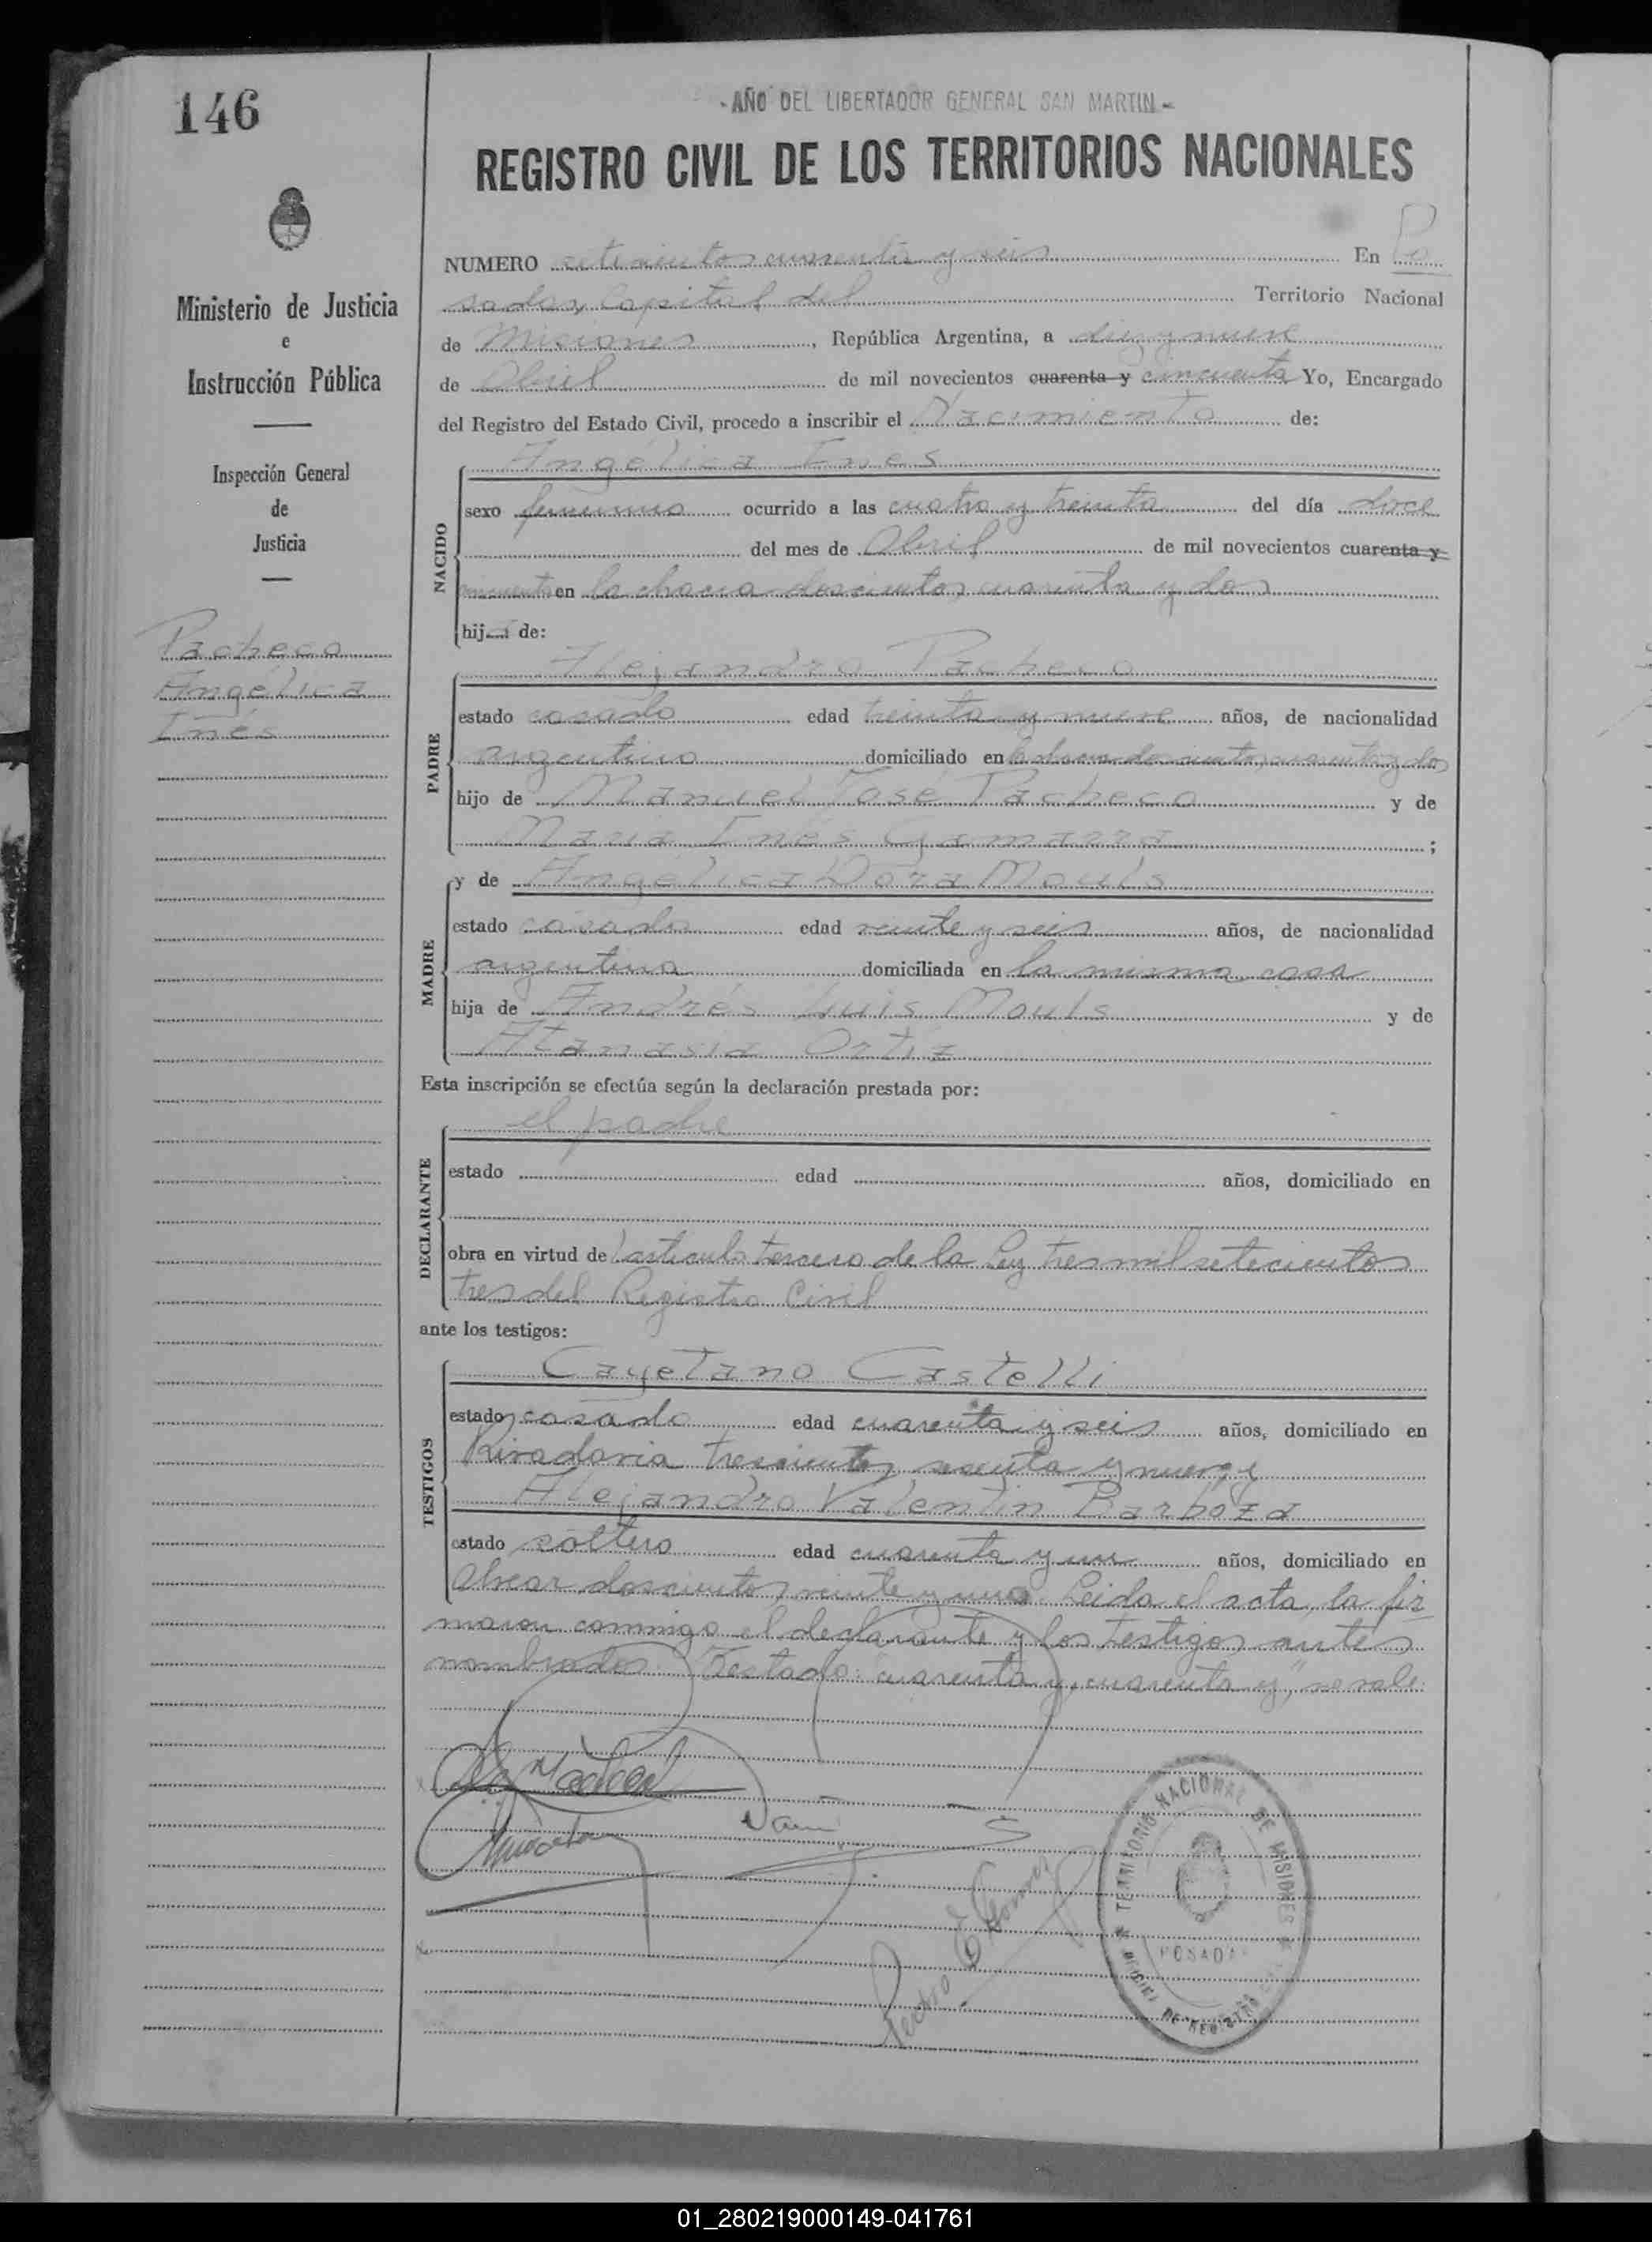 146
- AÑO DEL LIBERTADOR GENERAL SAN MARTIN -
REGISTRO CIVIL DE LOS TERRITORIOS NACIONALES
Ministerio de Justicia
e
Instrucción Pública
Inspección General
de
Justicia
Pacheco
Angélica
Inés
NUMERO setecientos cuarenta y seis En Po
sadas, Capital del Territorio Nacional
de Misiones, República Argentina, a diez y nueve
de Abril de mil novecientos cuarenta y cincuenta Yo, Encargado
del Registro del Estado Civil, procedo a inscribir el Nacimiento de:
NACIDO
Angélica Inés
sexo femenino ocurrido a las cuatro y treinta del día doce
del mes de Abril de mil novecientos cuarenta y
cincuenta en la chacra doscientos cuarenta y dos
hija de:
PADRE
Alejandro Pacheco
estado casado edad treinta y nueve años, de nacionalidad
argentino domiciliado en la chacra doscientos cuarenta y dos
hijo de Manuel José Pacheco y de
María Inés Gamarra ;
MADRE
y de Angélica Dora Mouls
estado casada edad veinte y seis años, de nacionalidad
argentina domiciliada en la misma casa
hija de Andrés Luis Mouls y de
Atanasia Ortiz
Esta inscripción se efectúa según la declaración prestada por:
DECLARANTE
el padre
estado edad años, domiciliado en
obra en virtud del artículo tercero de la Ley tres mil setecientos
tres del Registro Civil
ante los testigos:
TESTIGOS
Cayetano Castelli
estado casado edad cuarenta y seis años, domiciliado en
Rivadavia trescientos sesenta y nueve y
Alejandro Valentín Barboza
estado soltero edad cuarenta y un años, domiciliado en
Alvear doscientos veinte y uno. Leida el acta, la fir
maron conmigo el declarante y los testigos antes
nombrados. Testado: "cuarenta y, cuarenta y", no vale.
TERRITORIO NACIONAL DE MISIONES
POSADAS
OFICINA DE REGISTRO
01_280219000149-041761